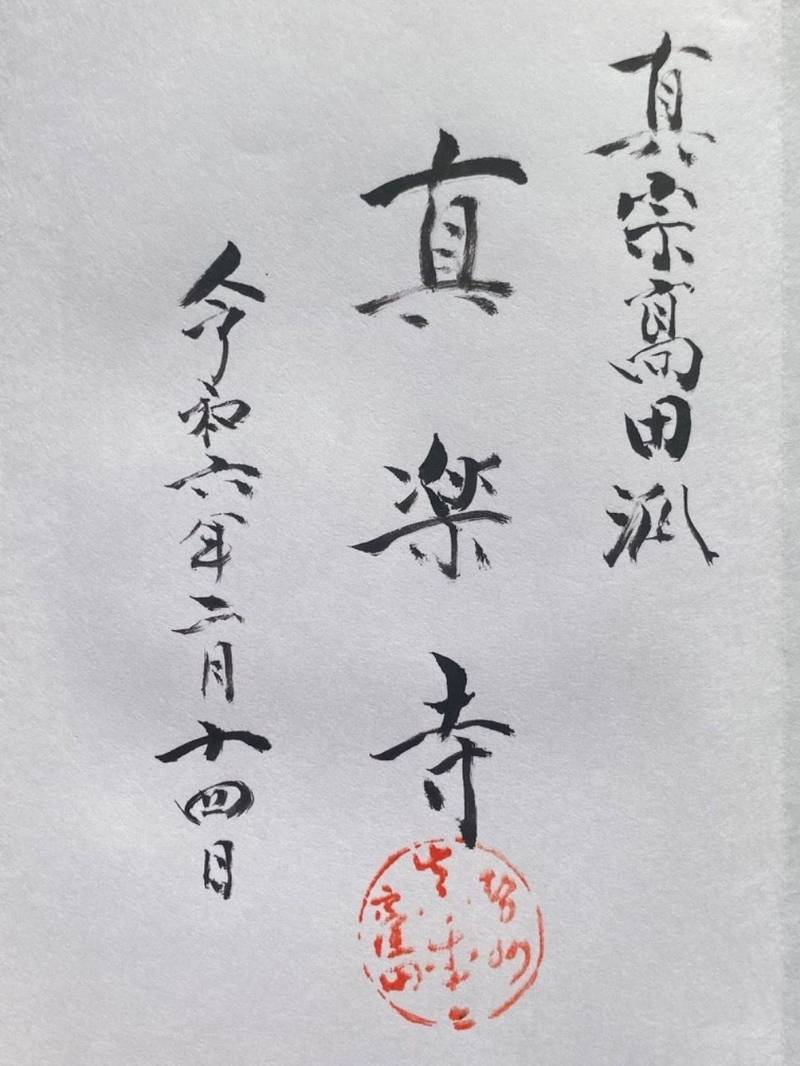 真宗高田派
真楽寺
令和六年二月十四日
勢州
窪田